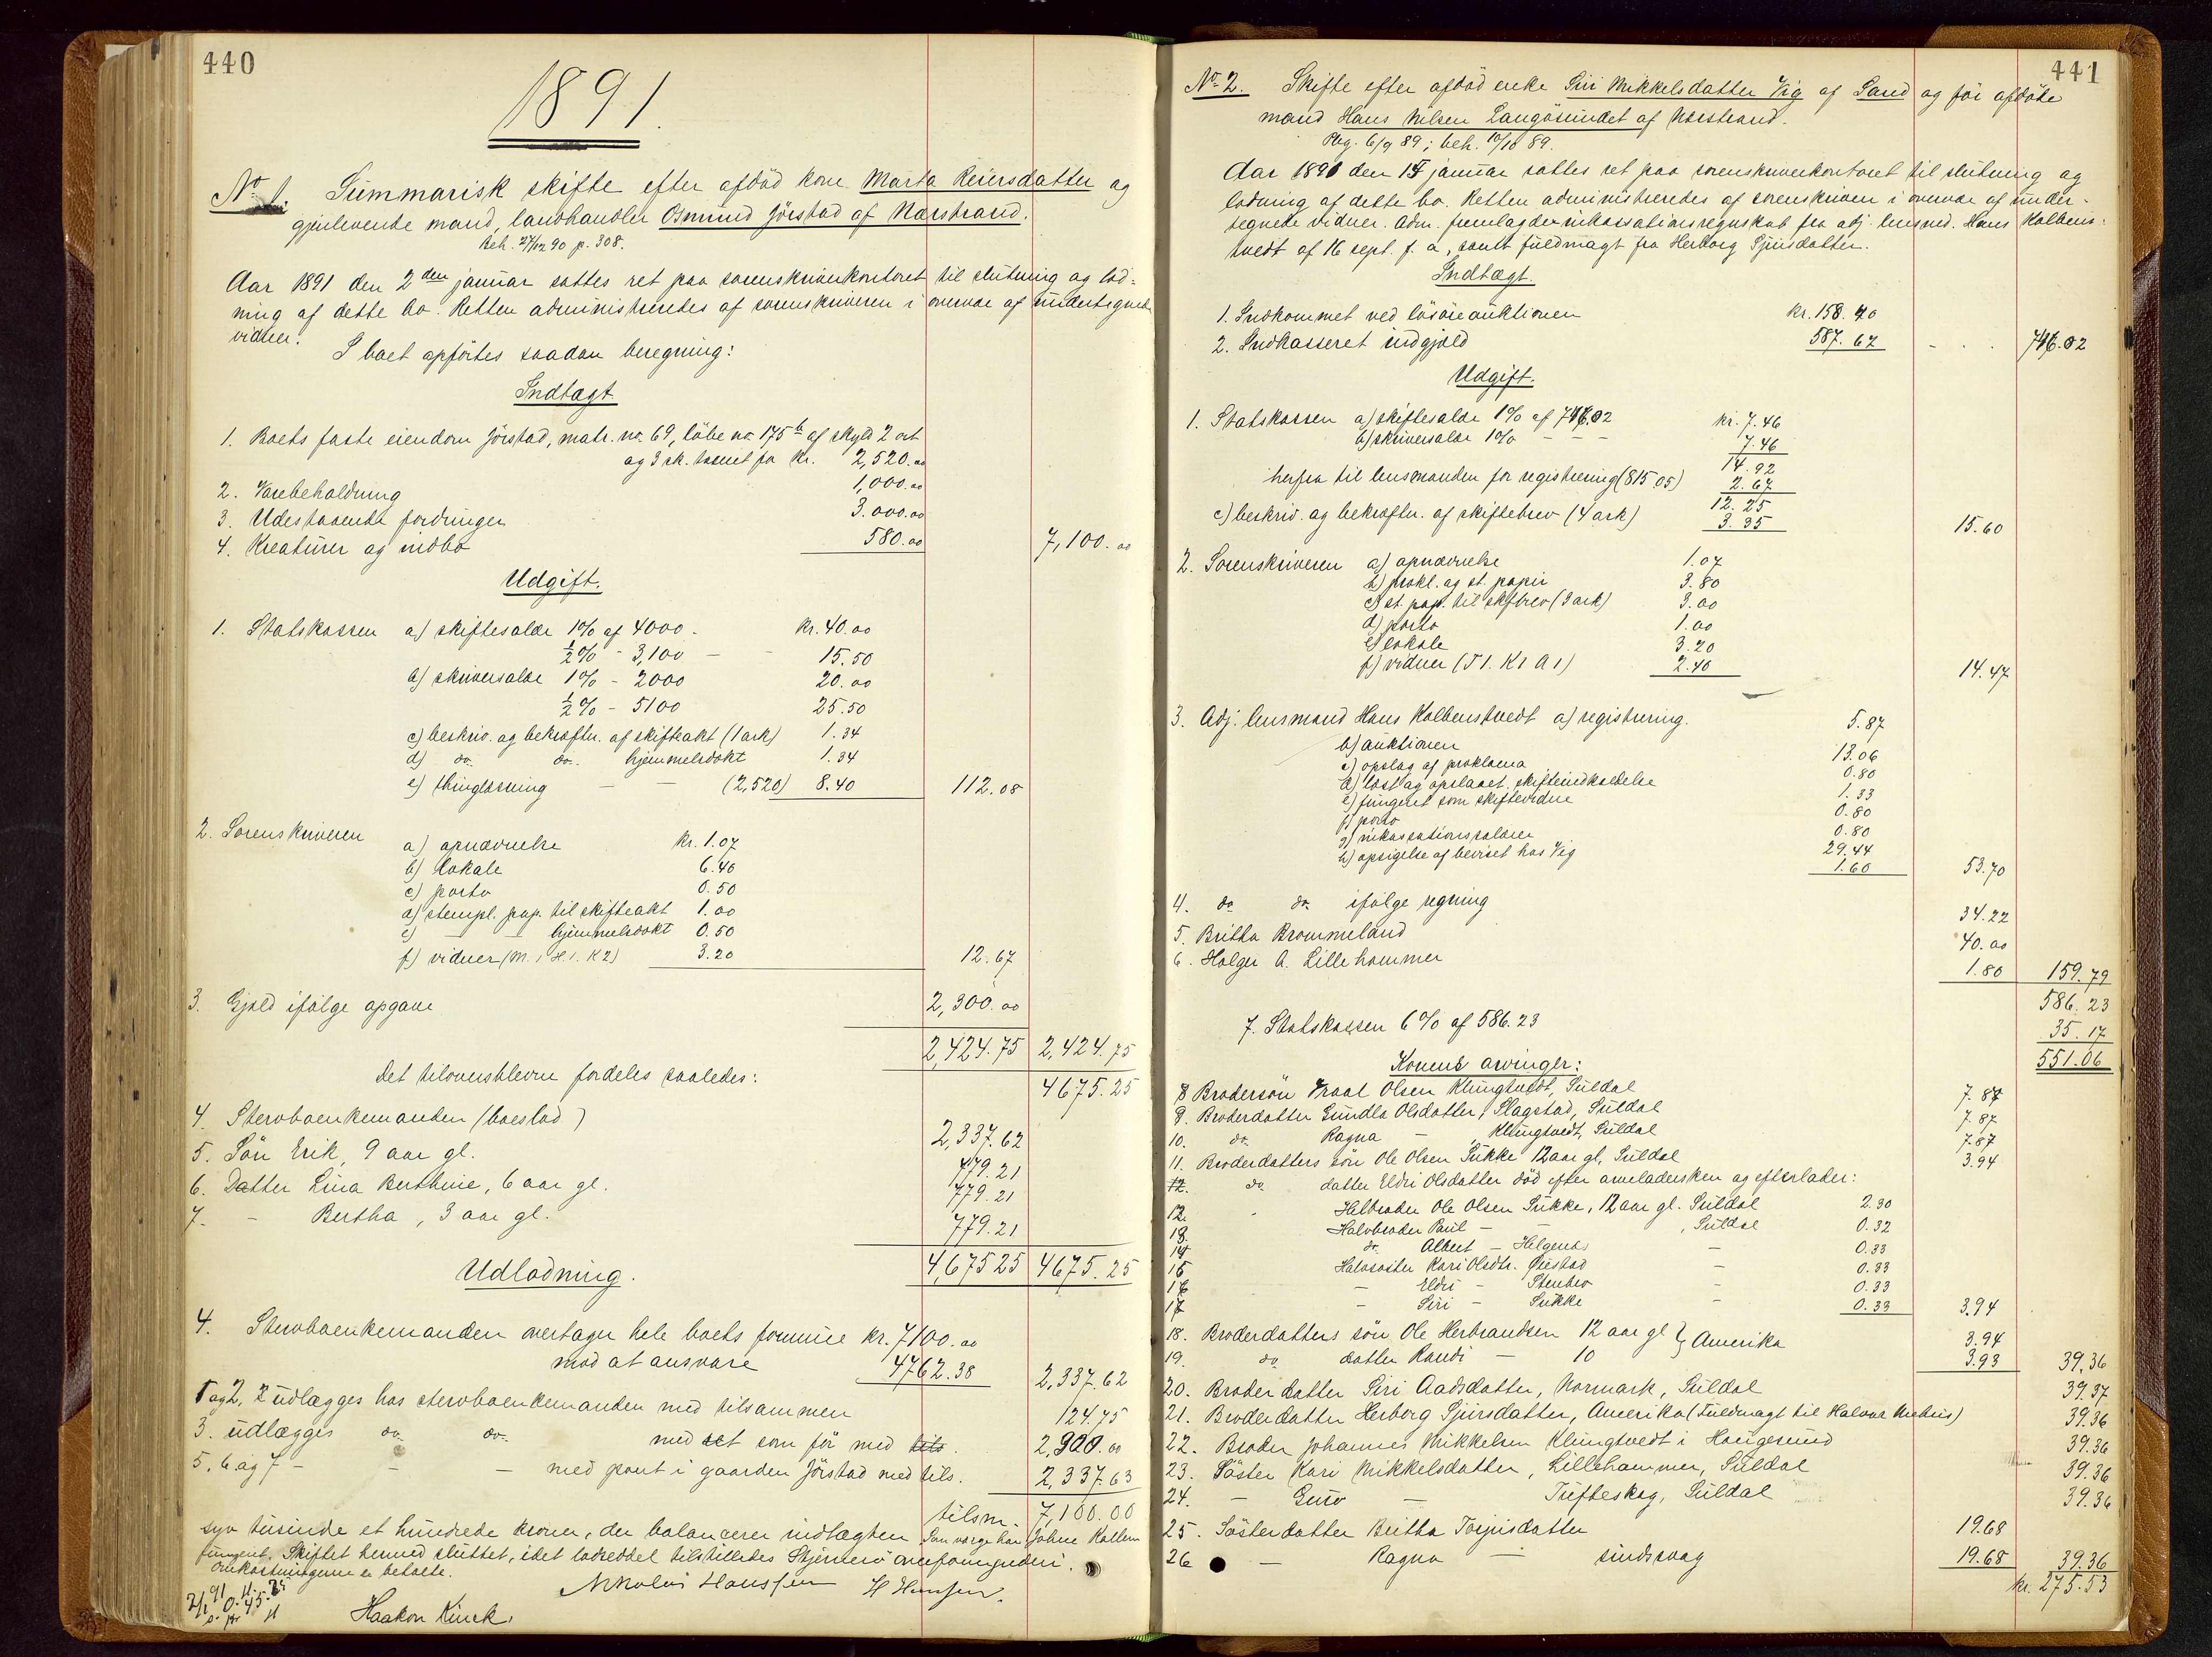 440
1891.
No 1. Summarisk skifte efter afdöd kone Marta Reiersdatter og
gjenlevende mand, landhandler Osmund Jörstad af Nærstrand.
Beh. 27/12 90 p. 308.
Aar 1891 den 2den januar sattes ret paa sorenskriverkontoret til slutning og lod-
ning af dette bo. Retten administreredes af sorenskriveren i overvær af undertegnede
vidner.
I boet opförtes saadan beregning:
Indtægt
1. Boets faste eiendom Jörstad, matr. no. 69, löbe no. 175b af skyld 2 ort
og 3 sk. taxeret for kr. 2,520.00
2. Varebeholdning 1,000.00
3. Udestaaende fordringer 3.000.00
4. Kreaturer og indbo 580.00 7,100.00
Udgift.
1. Statskassen a) skiftesalær 1% af 4000 - kr. 40.00
½% - 3,100 - 15.50
b) skriversalær 1% - 2000 20.00
½% - 5100 25.50
c) beskriv. og bekræftn. af skifteakt (1 ark) 1.34
d) do. do. hjemmelsdokt 1.34
e) thinglæsning - - (2,520) 8.40 112.08
2. Sorenskriveren a) opnævnelse kr. 1.07
b) lokale 6.40
c) porto 0.50
d) stempl. pap. til skifteakt 1.00
e) - - hjemmelsdokt 0.50
f) vidner (M. 1 H. 1. K 2) 3.20 12.67
3. Gjæld ifölge opgave 2,300.00
2,424.75 2,424.75
Det tiloversblevne fordeles saaledes: 4675.25
4. Stervboenkemanden (boeslod) 2,337.62
5. Sön Erik, 9 aar gl. 779.21
6. Datter Lina Berthine, 6 aar gl. 779.21
7. - Bertha, 3 aar gl. 779.21
4,675 25 4675.25
Udlodning.
4. Stervboenkemanden overtager hele boets formue kr. 7100.00
mod at ansvare 4762.38 2,337.62
1 og 2, udlægges hos stervboenkemanden med tilsammen 124.75
3. udlægges do. do. med det som för med tils. 2,300.00
5. 6 og 7 - - - med pant i gaarden Jörstad med tils. 2,337.63
tilsm. 7,100.00
syv tusinde et hundrede kroner, der balancerer indtægten. Som værge har Johne
fungeret. Skiftet hermed sluttet, idet lodseddel tilstilledes Stjernerö overformynderi.
Omkostningerne er betalte.
Nikolai Hanssen H Hansen.
Haakon Kinck.
441
No 2. Skifte efter afdöd enke Siri Mikkelsdatter Vig af Sand og för afdöde
mand Hans Nilsen Langösundet af Nærstrand.
Reg. 6/9 89; beh. 10/10 89.
Aar 1891 den 15 januar sattes ret paa sorenskriverkontoret til slutning og
lodning af dette bo. Retten administreredes af sorenskriveren i overvær af under-
tegnede vidner. Adm. fremlagde inkassationsregnskab fra adj. lensmd. Hans Kolbens-
tvedt af 16 sept. f. a., samt fuldmagt fra Herborg Sjursdatter.
Indtægt.
1. Indkommet ved lösöreauktionen kr. 158.40
2. Indkasseret indgjæld 587.62 - . . 746.02
Udgift.
1. Statskassen a) skiftesalær 1% af 746.02 kr. 7.46
b) skriversalær 1% - - - 7.46
14.92
herfra til lensmanden for registrering (815.05) 2.67
12.25
c) beskriv. og bekræftn. af skiftebrev (4 ark) 3.35 15.60
2. Sorenskriveren a) opnævnelse 1.07
b) prokl. og st. papir 3.80
c) st. pap. til skftbrev (3 ark) 3.00
d) porto 1.00
e) lokale 3.20
f) vidner (T 1. K 1 A 1) 2.40 14.47
3. Adj. lensmand Hans Kolbenstvedt a) registrering. 5.87
b) auktionen 13.06
c) opslag af proklama 0.80
d) læst og opslaaet skifteindkaldelse 1.33
e) fungeret som skiftevidne 0.80
f) porto 0.80
g) inkassationssalærer 29.44
h) opsigelse af beviset hos Vig 1.60 53.70
4. do do ifölge regning 34.22
5. Britha Brommeland 40.00
6. Holger A. Lillehammer 1.80 159.79
586.23
7. Statskassen 6% af 586.23 35.17
551.06
Konens arvinger:
8 Brodersön Traal Olsen Klungtvedt, Suldal 7.87
9. Broderdatter Gundla Olsdatter, Slagstad, Suldal 7.87
10. do Ragna - Klungtvedt, Suldal 7.87
11. Broderdatters sön Ole Olsen Sukke 12 aar gl, Suldal 3.94
12. do datter Eldri Olsdatter död efter arveladersken og efterlader:
12. Helbroder Ole Olsen Sukke, 12 aar gl. Suldal 2.30
13. Halvbroder Paul - - , Suldal 0.32
14 do Albert - Helgenæs - 0.33
15 Halvsöster Kari Olsdtr. - 0.33
16 - Eldri - Stenbro - 0.33
17 - Siri - Sukke - 0.33 3.94
18. Broderdatters sön Ole Herbrandsen 12 aar gl } Amerika 3.94
19. do datter Randi - 10 3.93 39.36
20. Broder datter Siri Aadsdatter, Normark, Suldal 39.37
21. Broderdatter Herborg Sjursdatter, Amerika (Fuldmagt til Halvor ) 39.36
22. Broder Johannes Mikkelsen Klungtvedt i Haugesund 39.36
23. Söster Kari Mikkelsdatter, Lillehammer, Suldal 39.36
24. - Guro - Tufteskog, Suldal 39.36
25. Sösterdatter Britha Torjusdatter 19.68
26 - Ragna - sindssvag 19.68 39.36
kr. 275.53